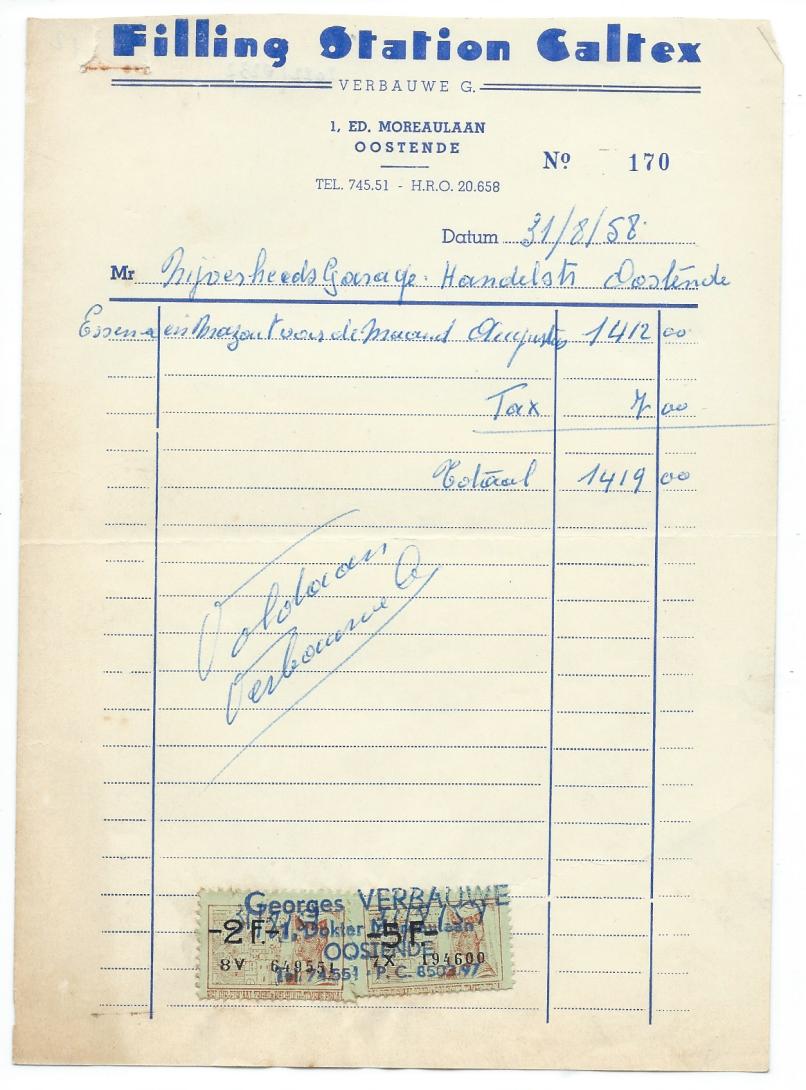 Filling Station Caltex
VERBAUWE G.
1, ED. MOREAULAAN
OOSTENDE
Nº 170
TEL. 745.51 - H.R.O. 20.658
Datum 31/8/58.
Mr NijverheedsGarage. Handelstr Oostende
en Mazout voor de Maand Augustus 1412 00
Tax 7 00
Totaal 1419 00
Voldaan
Verbauwe G
Georges VERBAUWE
-2F.- -5F-
1, Dokter Moreaulaan
OOSTENDE
8V 649551 194600
Tel. 74.551 - P. C.